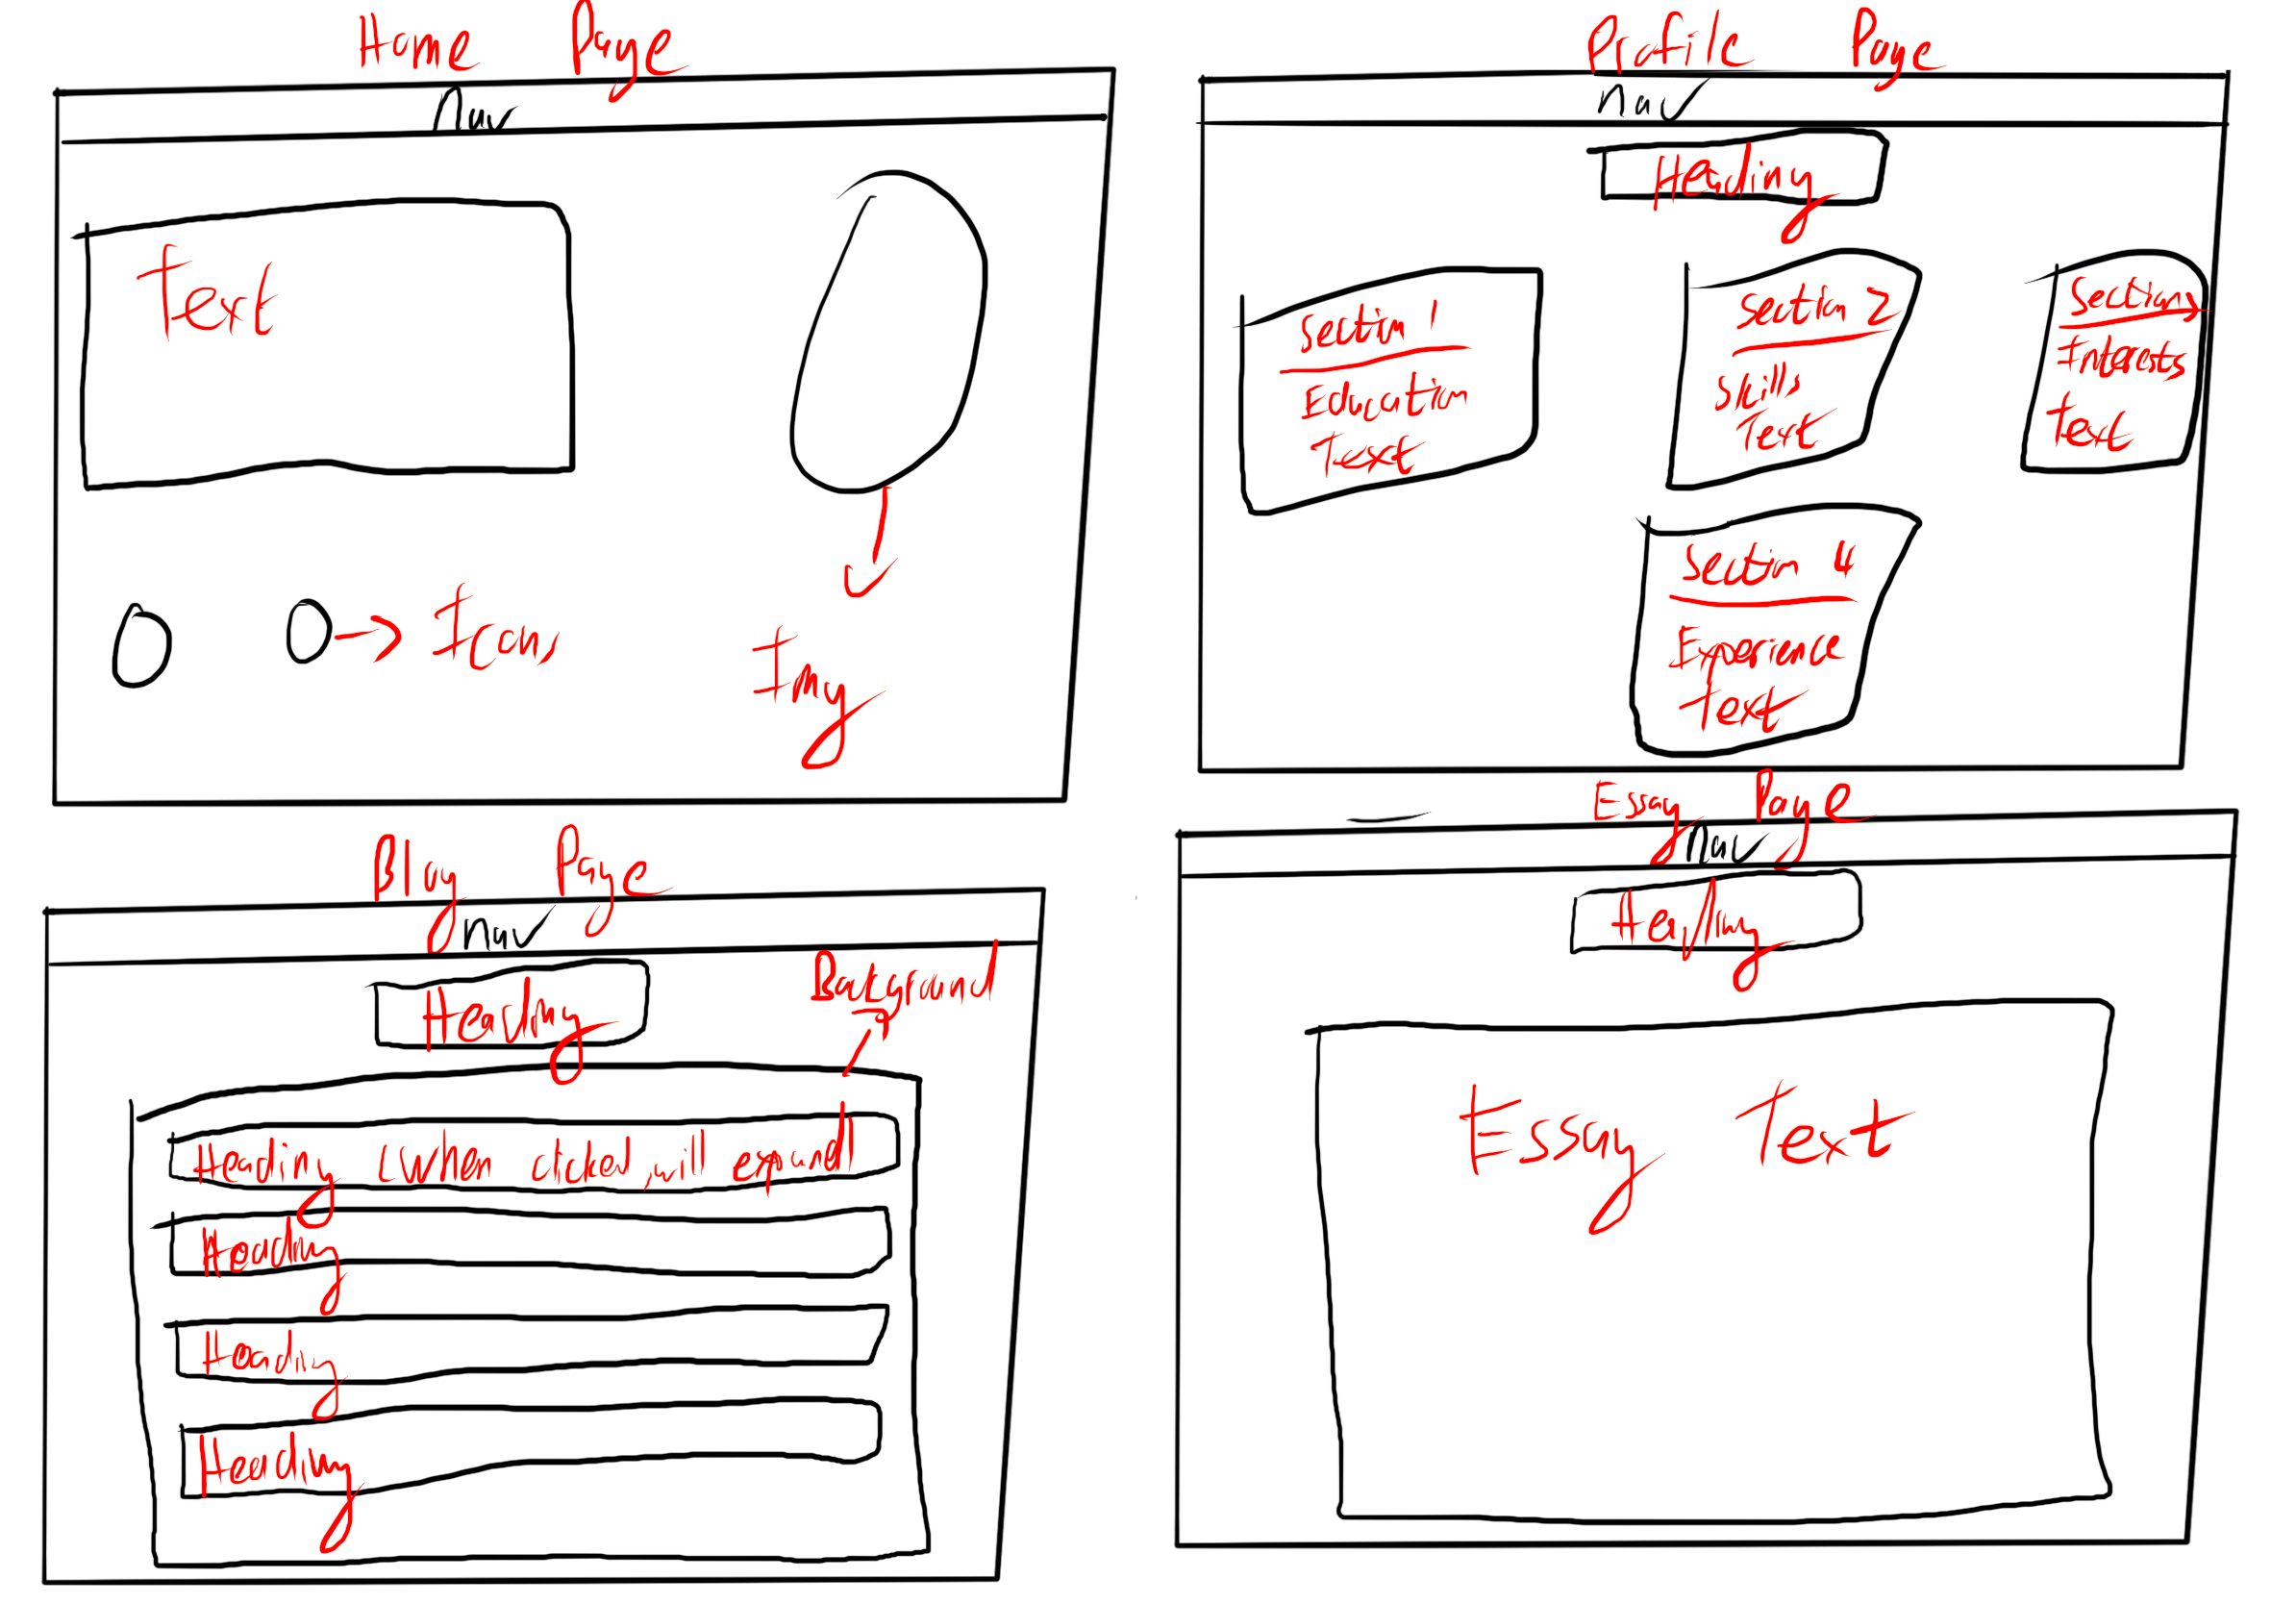 Home Page
Nav
Text
Icons
Img
Profile Page
nav
Heading
Section 1
Education
Text
Section 2
Skills
Text
Section
Interests
Text
Section 4
Experience
Text
Blog Page
nav
Heading
Background
Heading (When clicked, will expand)
Heading
Heading
Heading
Essay Page
nav
Heading
Essay Text